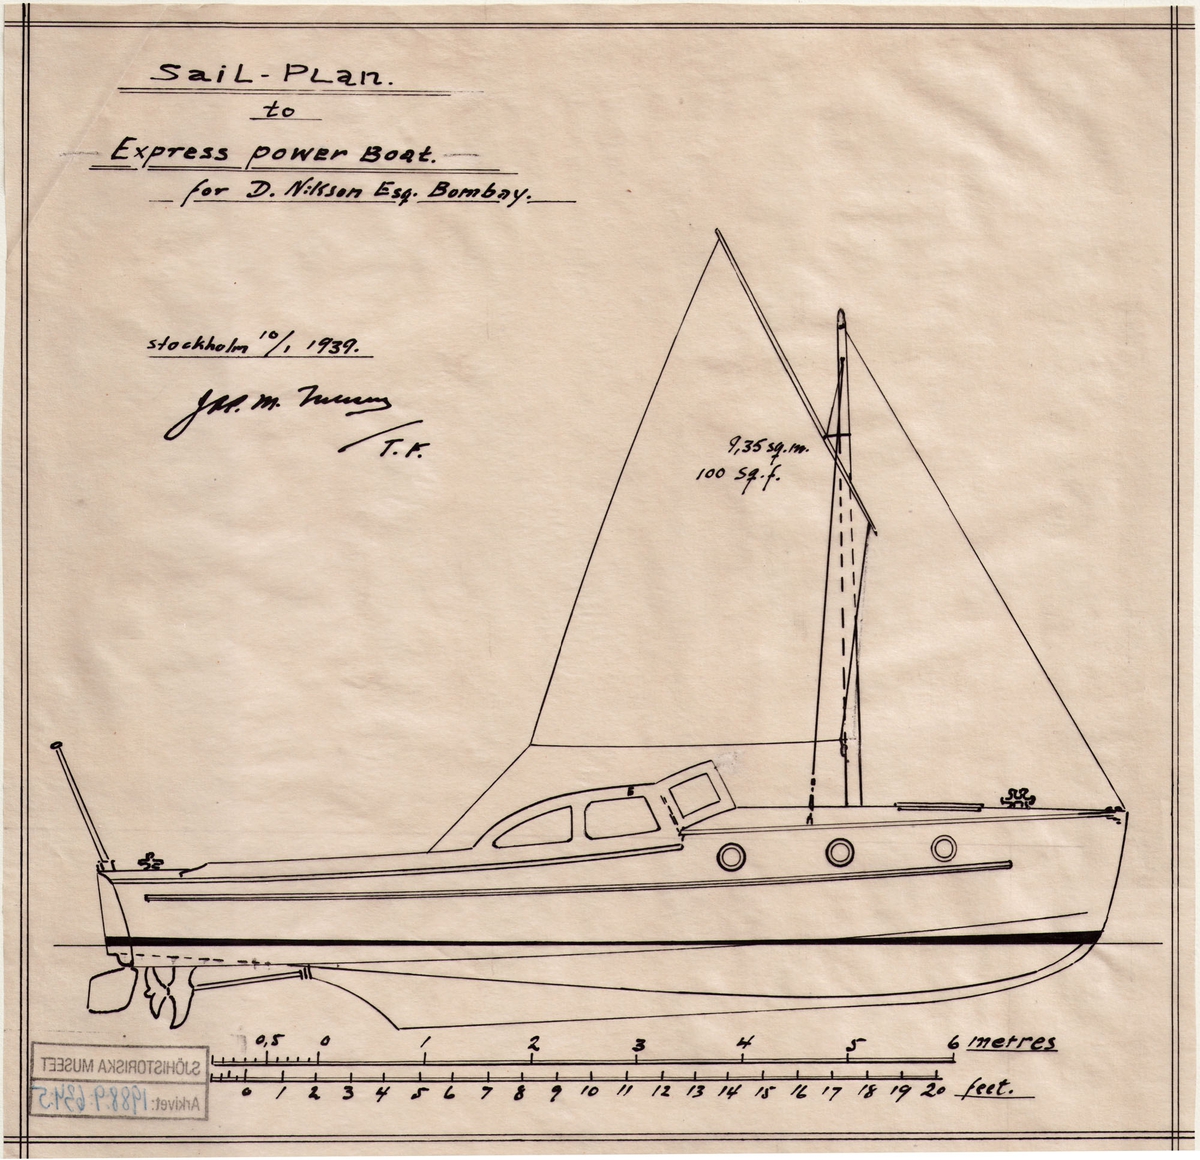 Sail-Plan.
to
Express power Boat.
for D. Nilsson Esq. Bombay.
Stockholm 10/1 1939.
T. F.
9,35 sq.m.
100 Sq.f.
0,5 0 1 2 3 4 5 6 metres
0 1 2 3 4 5 6 7 8 9 10 11 12 13 14 15 16 17 18 19 20 feet.
SJÖHISTORISKA MUSEET
Arkivet: